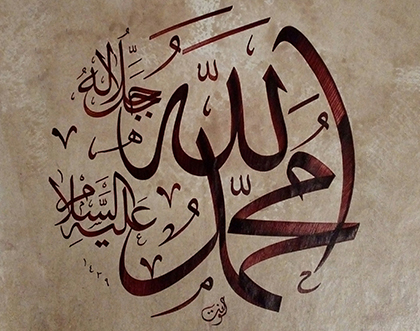 الله
جل جلاله
محمد
عليه السلام
١٤٢٩